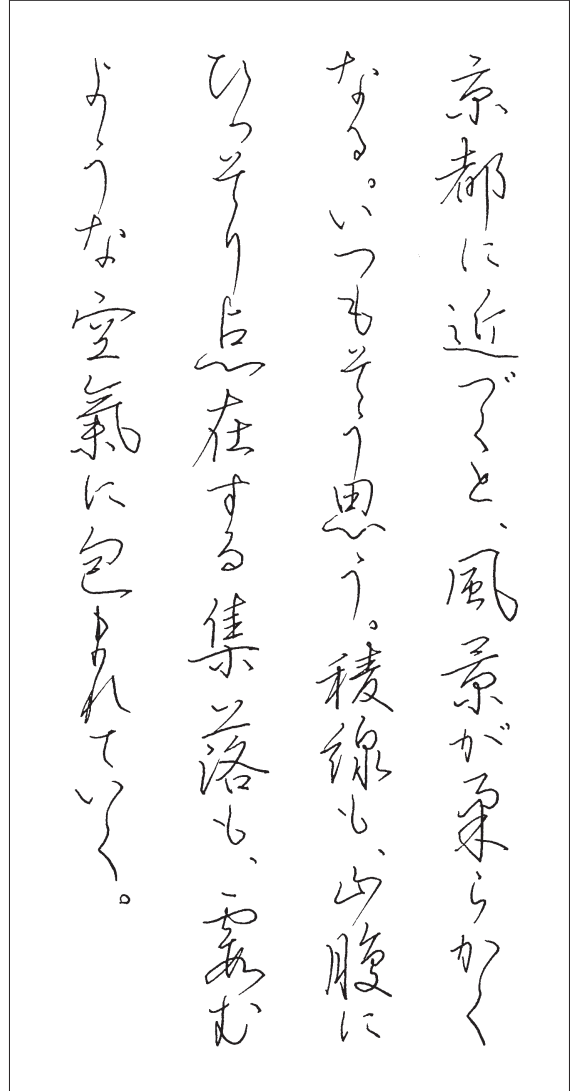 京都に近づくと、風景が柔らかく
なる。いつもそう思う。稜線も、山腹に
ひっそり点在する集落も、霞む
ような空氣に包まれていく。